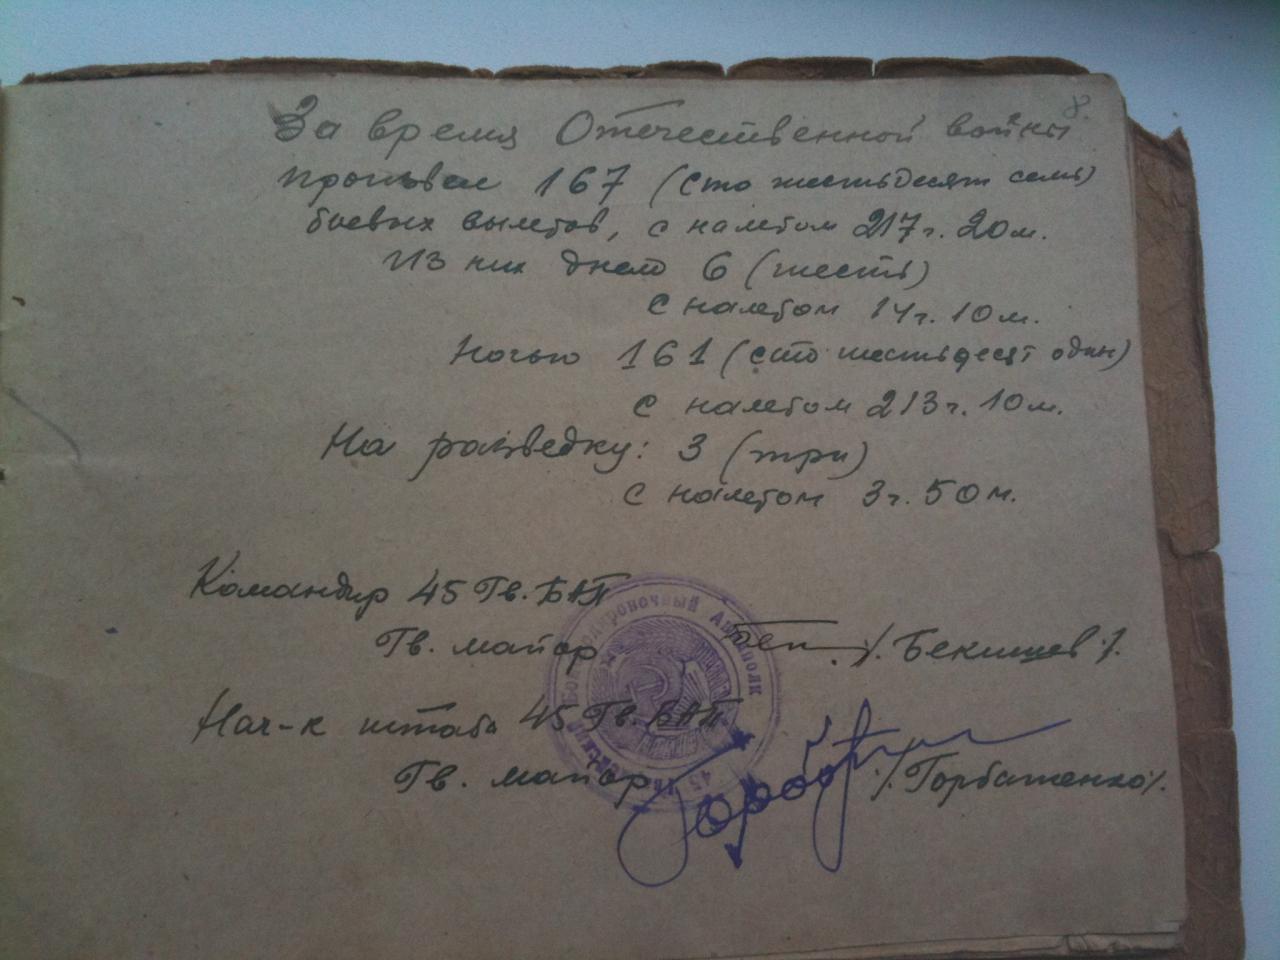 8.
За время Отечественной войны
произвел 167 (сто шестьдесят семь)
боевых вылетов, с налетом 217 г. 20 м.
Из них днем 6 (шесть)
с налетом 14 г. 10 м.
Ночью 161 (сто шестьдесят один)
с налетом 213 г. 10 м.
На разведку: 3 (три)
с налетом 3 г. 50 м.
Командир 45 Гв. БАП
Гв. майор /. Бекишев ./.
Нач-к штаба 45 Гв. БАП
Гв. майор ./. Горбатенко /.
Бомбардировочный Авиаполк
45